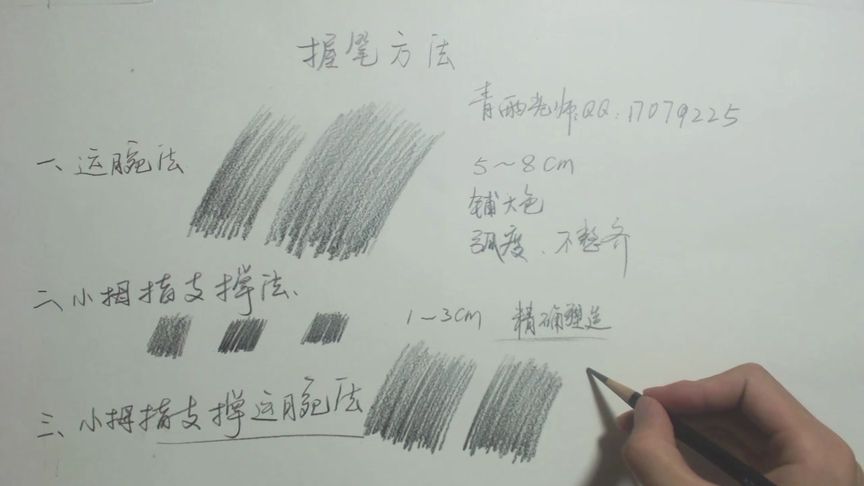 握笔方法
青雨老师:QQ:17079225
一、运腕法
5~8cm
铺大色
弧度、不整齐
二、小拇指支撑法、
1~3cm 精确塑造
三、小拇指支撑运腕法